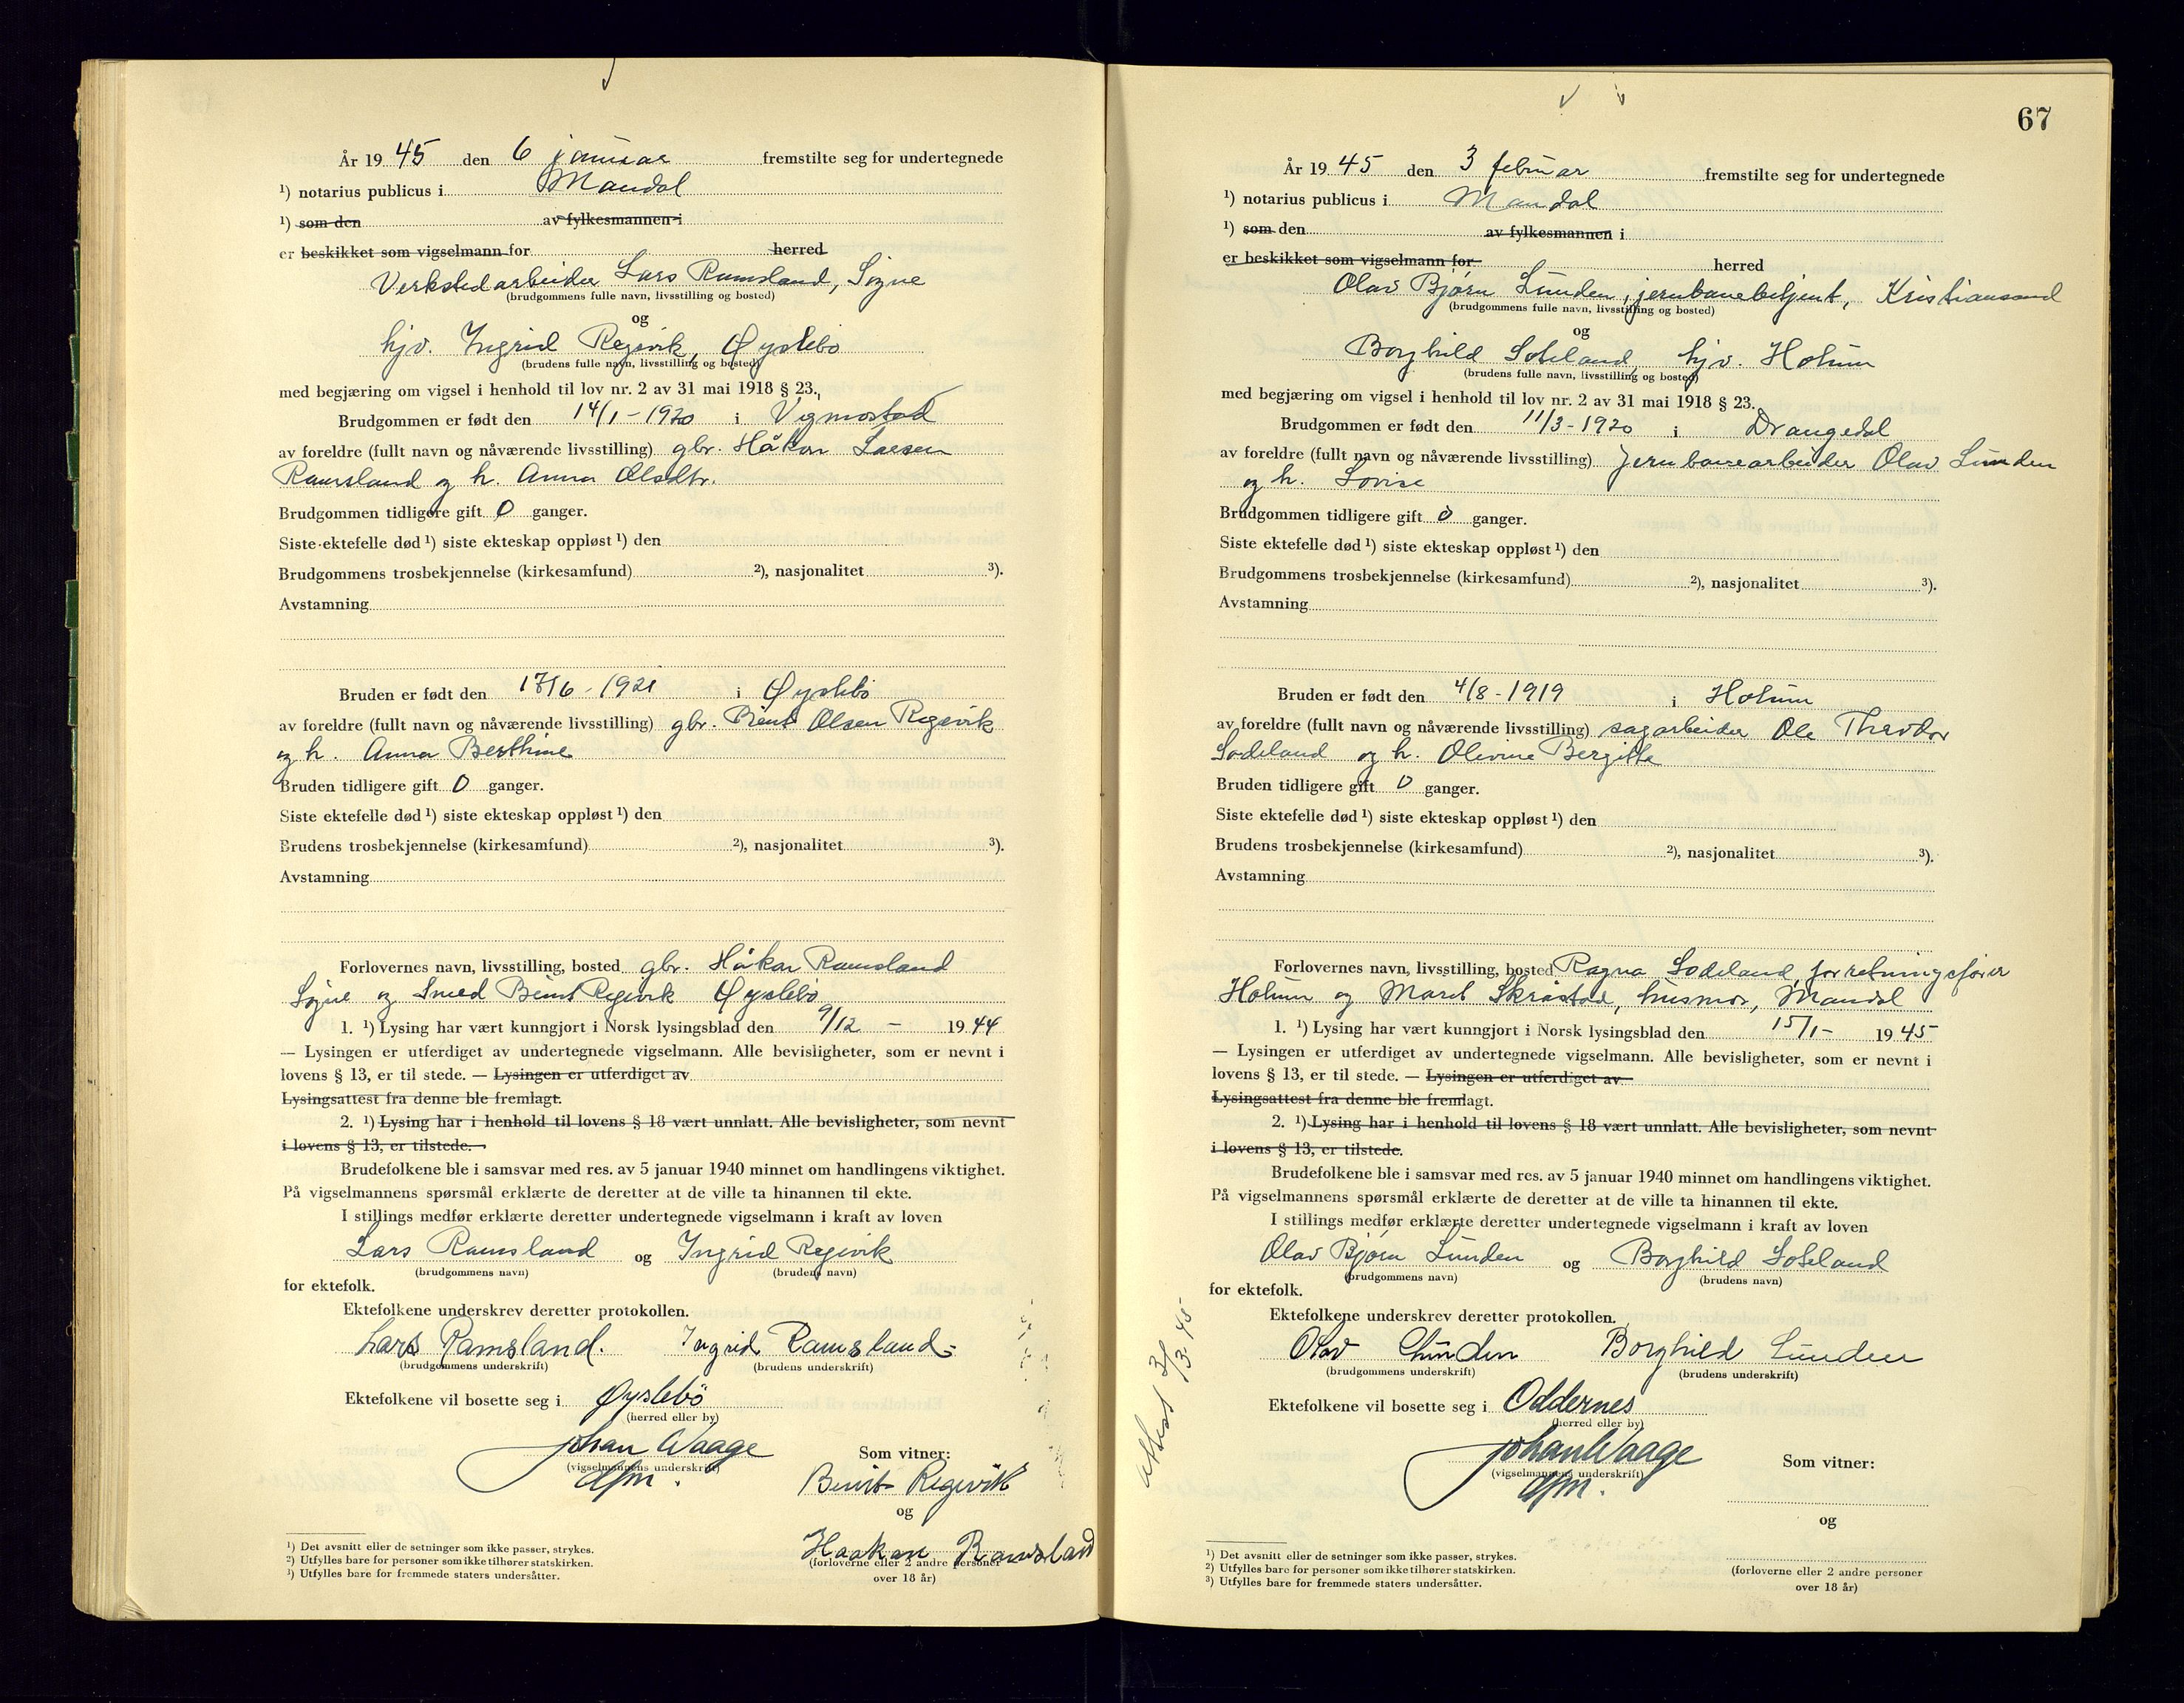 År 19 45 den 6 januar fremstilte seg for undertegnede
¹) notarius publicus i Mandal
¹) som den av fylkesmannen i
er beskikket som vigselmann for herred
Verkstedarbeider Lars Ramsland, Søgne
(brudgommens fulle navn, livsstilling og bosted)
og
hjv. Ingrid Regevik, Øyslebö
(brudens fulle navn, livsstilling og bosted)
med begjæring om vigsel i henhold til lov nr. 2 av 31 mai 1918 § 23.
Brudgommen er født den 14/1-1920 i Vigmostad
av foreldre (fullt navn og nåværende livsstilling) gbr. Håkon Larsen
Ramsland og h. Anna Olsdtr.
Brudgommen tidligere gift 0 ganger.
Siste ektefelle død ¹) siste ekteskap oppløst ¹) den
Brudgommens trosbekjennelse (kirkesamfund) ²), nasjonalitet ³).
Avstamning
Bruden er født den 17/6-1921 i Øyslebö
av foreldre (fullt navn og nåværende livsstilling) gbr. Bent Olsen Regevik
og h. Anna Berthine
Bruden tidligere gift 0 ganger.
Siste ektefelle død ¹) siste ekteskap oppløst ¹) den
Brudens trosbekjennelse (kirkesamfund) ²), nasjonalitet ³).
Avstamning
Forlovernes navn, livsstilling, bosted gbr. Håkon Ramsland
Søgne og Smed Bent Regevik Øyslebö
1. ¹) Lysing har vært kunngjort i Norsk lysingsblad den 9/12 - 19 44
— Lysingen er utferdiget av undertegnede vigselmann. Alle bevisligheter, som er nevnt i
lovens § 13, er til stede. — Lysingen er utferdiget av
Lysingsattest fra denne ble fremlagt.
2. ¹) Lysing har i henhold til lovens § 18 vært unnlatt. Alle bevisligheter, som nevnt
i lovens § 13, er tilstede.
Brudefolkene ble i samsvar med res. av 5 januar 1940 minnet om handlingens viktighet.
På vigselmannens spørsmål erklærte de deretter at de ville ta hinannen til ekte.
I stillings medfør erklærte deretter undertegnede vigselmann i kraft av loven
Lars Ramsland og Ingrid Regevik
(brudgommens navn) (brudens navn)
for ektefolk.
Ektefolkene underskrev deretter protokollen.
Lars Ramsland. Ingrid Ramsland
(brudgommens underskrift) (brudens underskrift)
Ektefolkene vil bosette seg i Øyslebö
(herred eller by)
Johan Waage Som vitner:
(vigselmannens underskrift)
Bent Regevik
og
Haakon Ramsland
(forloverne eller 2 andre personer
over 18 år)
¹) Det avsnitt eller de setninger som ikke passer, strykes.
²) Utfylles bare for personer som ikke tilhører statskirken.
³) Utfylles bare for fremmede staters undersåtter.
67
År 19 45 den 3 februar fremstilte seg for undertegnede
¹) notarius publicus i Mandal
¹) som den av fylkesmannen i
er beskikket som vigselmann for herred
Olav Bjørn Lunden, jernbanebetjent, Kristiansand
(brudgommens fulle navn, livsstilling og bosted)
og
Borghild Sodeland, hjv. Holum
(brudens fulle navn, livsstilling og bosted)
med begjæring om vigsel i henhold til lov nr. 2 av 31 mai 1918 § 23.
Brudgommen er født den 11/3-1920 i Drangedal
av foreldre (fullt navn og nåværende livsstilling) Jernbanearbeider Olav Lunden
og h. Lovise
Brudgommen tidligere gift 0 ganger.
Siste ektefelle død ¹) siste ekteskap oppløst ¹) den
Brudgommens trosbekjennelse (kirkesamfund) ²), nasjonalitet ³).
Avstamning
Bruden er født den 4/8-1919 i Holum
av foreldre (fullt navn og nåværende livsstilling) sagarbeider Ole Theodor
Sodeland og h. Olevine Bergitte
Bruden tidligere gift 0 ganger.
Siste ektefelle død ¹) siste ekteskap oppløst ¹) den
Brudens trosbekjennelse (kirkesamfund) ²), nasjonalitet ³).
Avstamning
Forlovernes navn, livsstilling, bosted Ragna Sodeland, forretningsfører
Holum og Marit Skråstad, husmor, Mandal
1. ¹) Lysing har vært kunngjort i Norsk lysingsblad den 15/1- 19 45
— Lysingen er utferdiget av undertegnede vigselmann. Alle bevisligheter, som er nevnt i
lovens § 13, er til stede. — Lysingen er utferdiget av
Lysingsattest fra denne ble fremlagt.
2. ¹) Lysing har i henhold til lovens § 18 vært unnlatt. Alle bevisligheter, som nevnt
i lovens § 13, er tilstede.
Brudefolkene ble i samsvar med res. av 5 januar 1940 minnet om handlingens viktighet.
På vigselmannens spørsmål erklærte de deretter at de ville ta hinannen til ekte.
I stillings medfør erklærte deretter undertegnede vigselmann i kraft av loven
Olav Bjørn Lunden og Borghild Sodeland
(brudgommens navn) (brudens navn)
for ektefolk.
Ektefolkene underskrev deretter protokollen.
Olav Lunden Borghild Lunden
(brudgommens underskrift) (brudens underskrift)
Ektefolkene vil bosette seg i Oddernes
(herred eller by)
Johan Waage Som vitner:
(vigselmannens underskrift)
og
(forloverne eller 2 andre personer
over 18 år)
¹) Det avsnitt eller de setninger som ikke passer, strykes.
²) Utfylles bare for personer som ikke tilhører statskirken.
³) Utfylles bare for fremmede staters undersåtter.